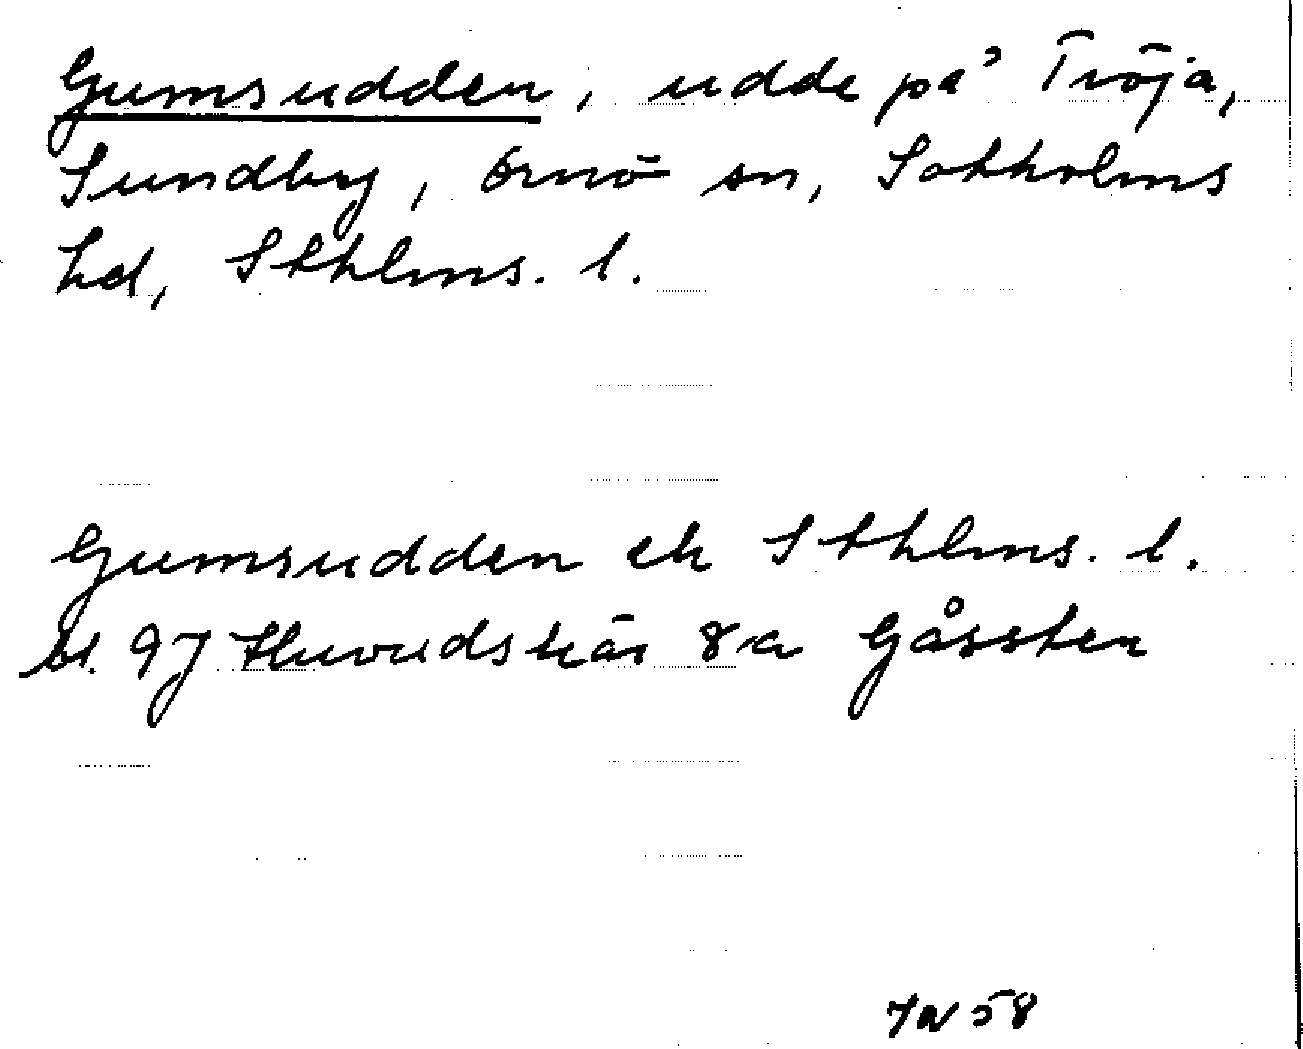 Gumsudden, udde på Tröja,
Sundby, Ornö sn, Sotholms
hd, Sthlms. l.
Gumsudden ek Sthlms. l.
bl. 97 Huvudskär 8a Gåssten